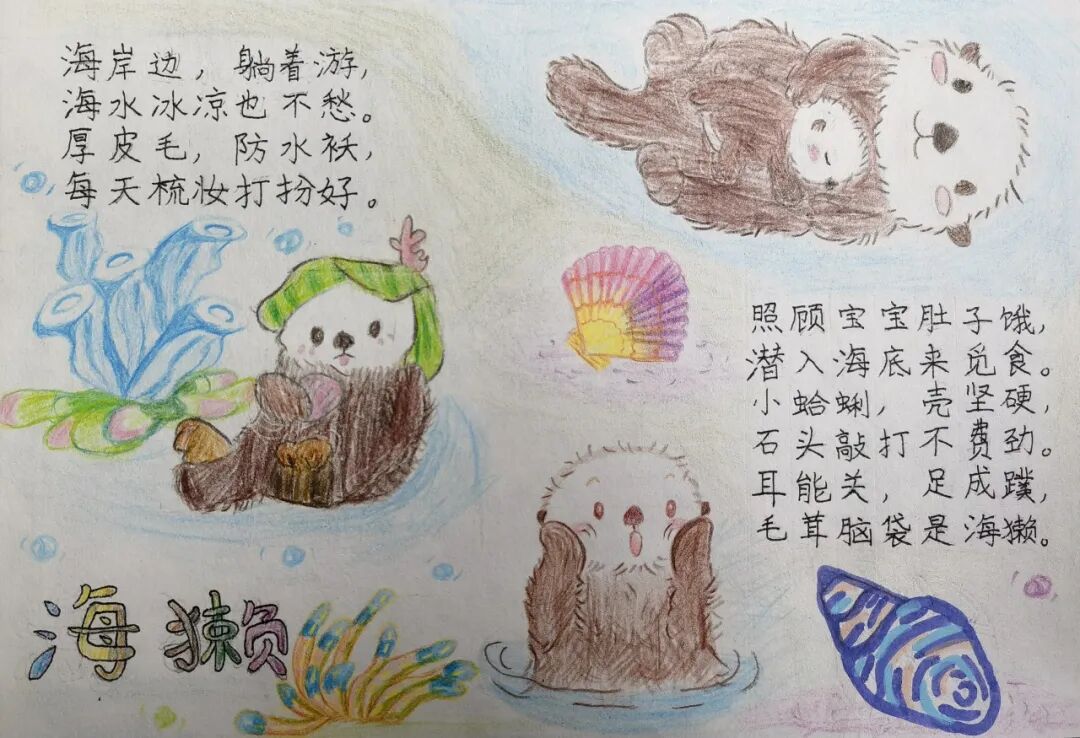 海岸边，躺着游，
海水冰凉也不愁。
厚皮毛，防水袄，
每天梳妆打扮好。
照顾宝宝肚子饿，
潜入海底来觅食。
小蛤蜊，壳坚硬，
石头敲打不费劲。
耳能关，足成蹼，
毛茸脑袋是海獭。
海獭